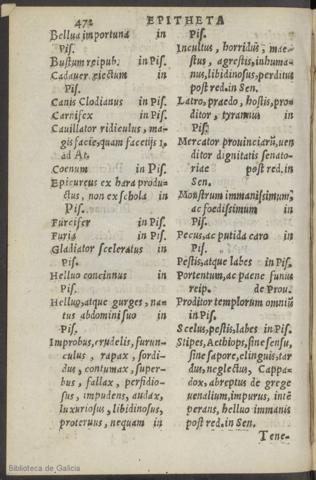 472 EPITHETA
Bellua importuna in
Pis.
Bustum reipub. in Pis.
Cadauer eiectum in
Pis.
Canis Clodianus in Pis.
Carnifex in Pis.
Cauillator ridiculus, ma-
gis facie, quam facetijs 1,
ad At.
Coenum in Pis.
Epicureus ex hara produ-
ctus, non ex schola in
Pis.
Furcifer in Pis.
Furia in Pis.
Gladiator sceleratus in
Pis.
Helluo concinnus in
Pis.
Helluo, atque gurges, na-
tus abdomini suo in
Pis.
Improbus, crudelis, furun-
culus, rapax, sordi-
dus, contumax, super-
bus, fallax, perfidio-
sus, impudens, audax,
luxuriosus, libidinosus,
proteruus, nequam in
Pis.
Incultus, horridus, mae-
stus, agrestis, inhuma-
nus, libidinosus, perditus
post red. in Sen.
Latro, praedo, hostis, pro-
ditor, tyrannus in
Pis.
Mercator prouinciarũ, uen
ditor dignitatis senato-
riae post red. in
Sen.
Monstrum immanissimum,
ac foedissimum in
Pis.
Pecus, ac putida caro in
Pis.
Pestis, atque labes in Pis.
Portentum, ac paene funus
reip. de Prou.
Proditor templorum omniũ
in Pis.
Scelus, pestis, labes in Pis.
Stipes, Aethiops, sine sensu,
sine sapore, elinguis, tar
dus, neglectus, Cappa-
dox, abreptus de grege
uenalium, impurus, intẽ
perans, helluo immanis
post red. in Sen.
Tene-
Biblioteca de Galicia